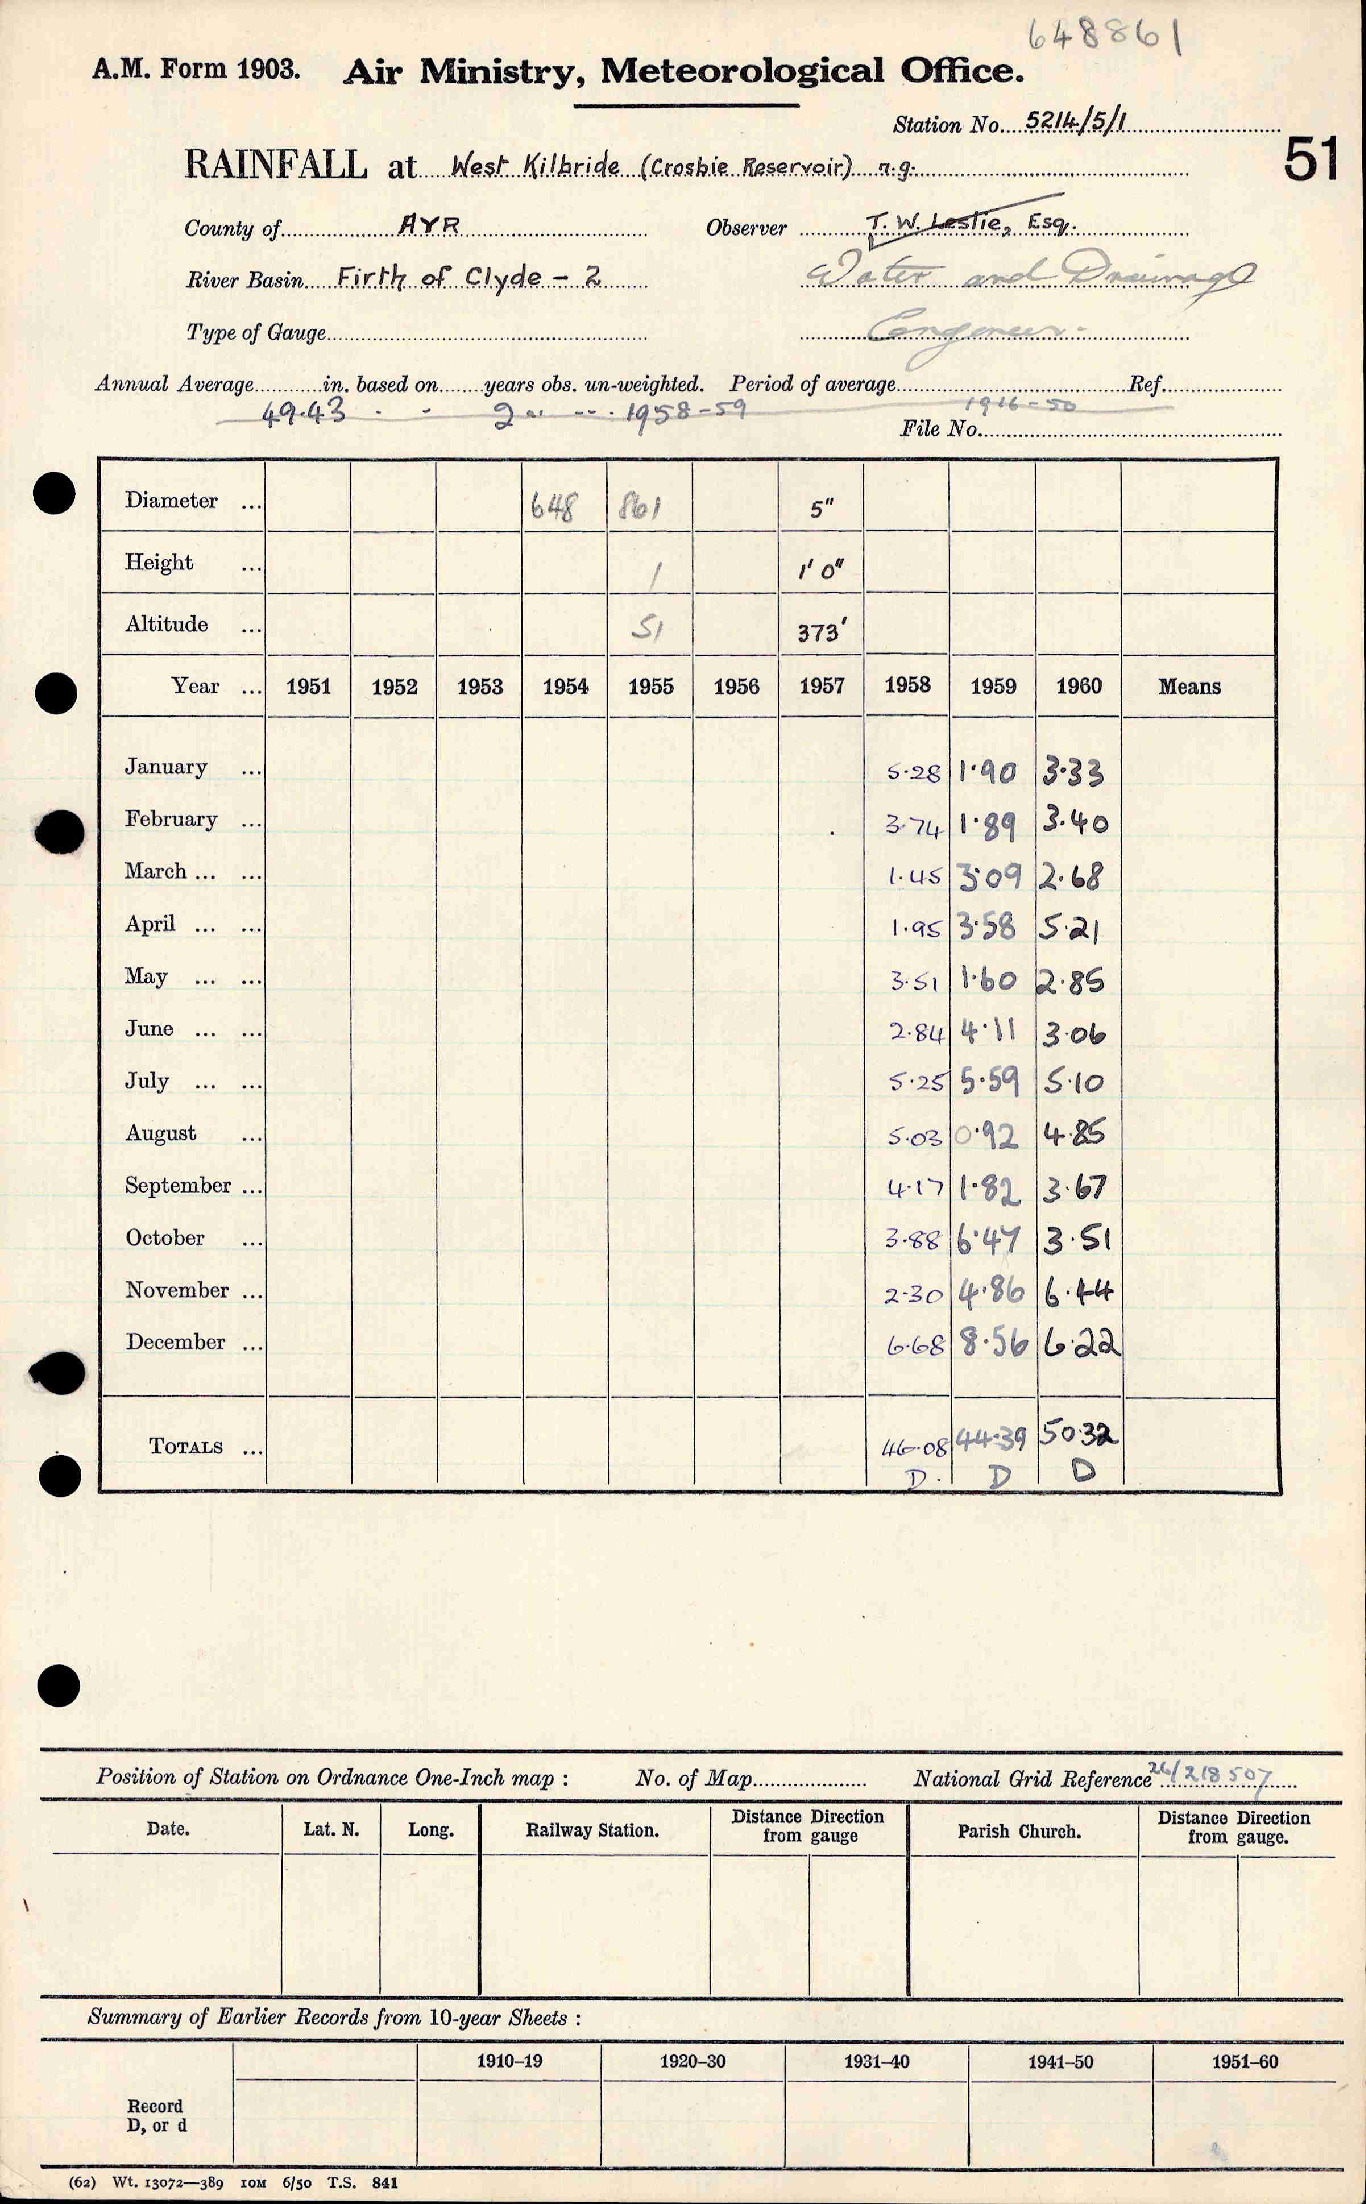 648861
A.M. Form 1903. Air Ministry, Meteorological Office.
Station No. 5214/5/1
51
RAINFALL at West Kilbride (Crosbie Reservoir) n.g.
County of AYR Observer T. W. Leslie, Esq.
River Basin Firth of Clyde - 2 Water and Drainage
Type of Gauge Engineer.
Annual Average in. based on years obs. un-weighted. Period of average Ref.
49.43 2 1958-59 1916-50
File No.
Diameter ... 648 861 5"
Height ... 1 1' 0"
Altitude ... 51 373'
Year ... 1951 1952 1953 1954 1955 1956 1957 1958 1959 1960 Means
January ... 5.28 1.90 3.33
February ... 3.74 1.89 3.40
March ... ... 1.45 3.09 2.68
April ... ... 1.95 3.58 5.21
May ... ... 3.51 1.60 2.85
June ... ... 2.84 4.11 3.06
July ... ... 5.25 5.59 5.10
August ... 5.03 0.92 4.85
September ... 4.17 1.82 3.67
October ... 3.88 6.47 3.51
November ... 2.30 4.86 6.44
December ... 6.68 8.56 6.22
TOTALS ... 46.08 44.39 50.32
D. D D
Position of Station on Ordnance One-Inch map : No. of Map National Grid Reference 26/218507
Date. Lat. N. Long. Railway Station. Distance Direction from gauge Parish Church. Distance Direction from gauge.
Summary of Earlier Records from 10-year Sheets :
1910–19 1920–30 1931–40 1941–50 1951–60
Record
D, or d
(62) Wt. 13072—389 10M 6/50 T.S. 841